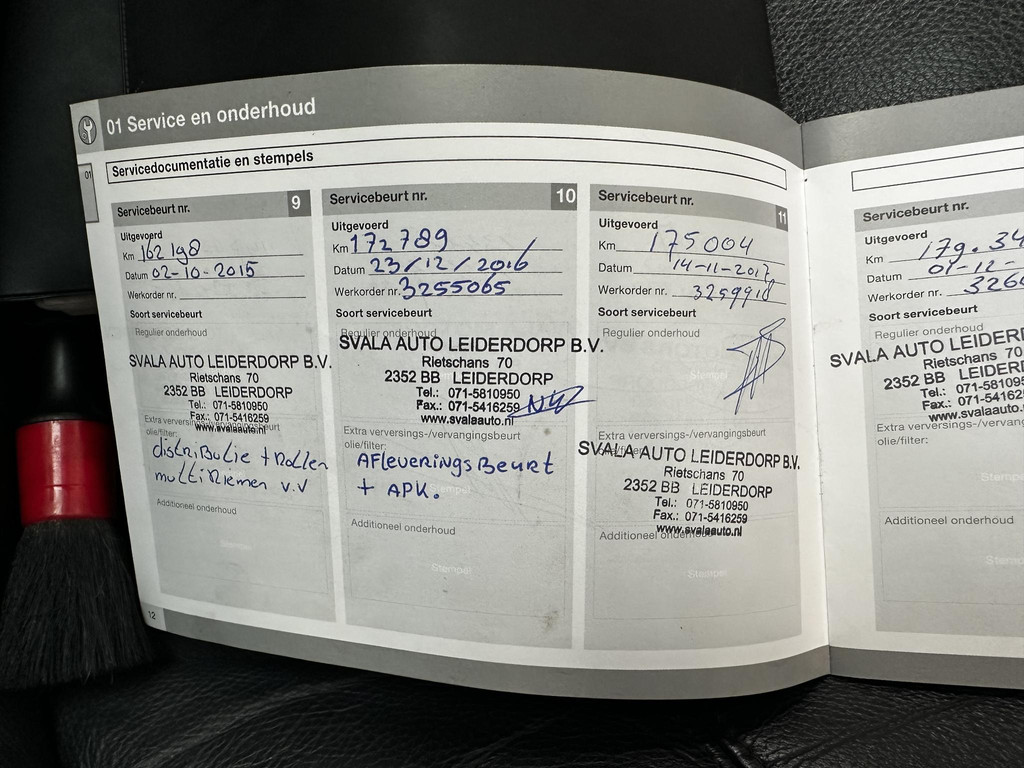 01 Service en onderhoud
01
Servicedocumentatie en stempels
Servicebeurt nr. 9
Uitgevoerd
Km 162198
Datum 02-10-2015
Werkorder nr.
Soort servicebeurt
Regulier onderhoud
SVALA AUTO LEIDERDORP B.V.
Rietschans 70
2352 BB LEIDERDORP
Tel.: 071-5810950
Fax.: 071-5416259
www.svalaauto.nl
Extra verversings-/vervangingsbeurt
olie/filter:
distributie + Rollen
multiRiemen v.v
Additioneel onderhoud
Stempel
12
Servicebeurt nr. 10
Uitgevoerd
Km 172789
Datum 23/12/2016
Werkorder nr. 3255065
Soort servicebeurt
Regulier onderhoud
SVALA AUTO LEIDERDORP B.V.
Rietschans 70
2352 BB LEIDERDORP
Tel.: 071-5810950
Fax.: 071-5416259
www.svalaauto.nl
Extra verversings-/vervangingsbeurt
olie/filter:
AFleveringsBeurt
+ APK.
Additioneel onderhoud
Stempel
Servicebeurt nr. 11
Uitgevoerd
Km 175004
Datum 14-11-2017
Werkorder nr. 3259918
Soort servicebeurt
Regulier onderhoud
Stempel
Extra verversings-/vervangingsbeurt
SVALA AUTO LEIDERDORP B.V.
Rietschans 70
2352 BB LEIDERDORP
Tel.: 071-5810950
Fax.: 071-5416259
www.svalaauto.nl
Additioneel onderhoud
Stempel
Servicebeurt nr.
Uitgevoerd
Km 179.34
Datum 01-12-
Werkorder nr. 326
Soort servicebeurt
Regulier onderhoud
SVALA AUTO LEIDER
Rietschans 70
2352 BB LEIDER
Tel.: 071-581095
Fax.: 071-54162
www.svalaauto.nl
Extra verversings-/vervangingsb
olie/filter:
Additioneel onderhoud
Stemp